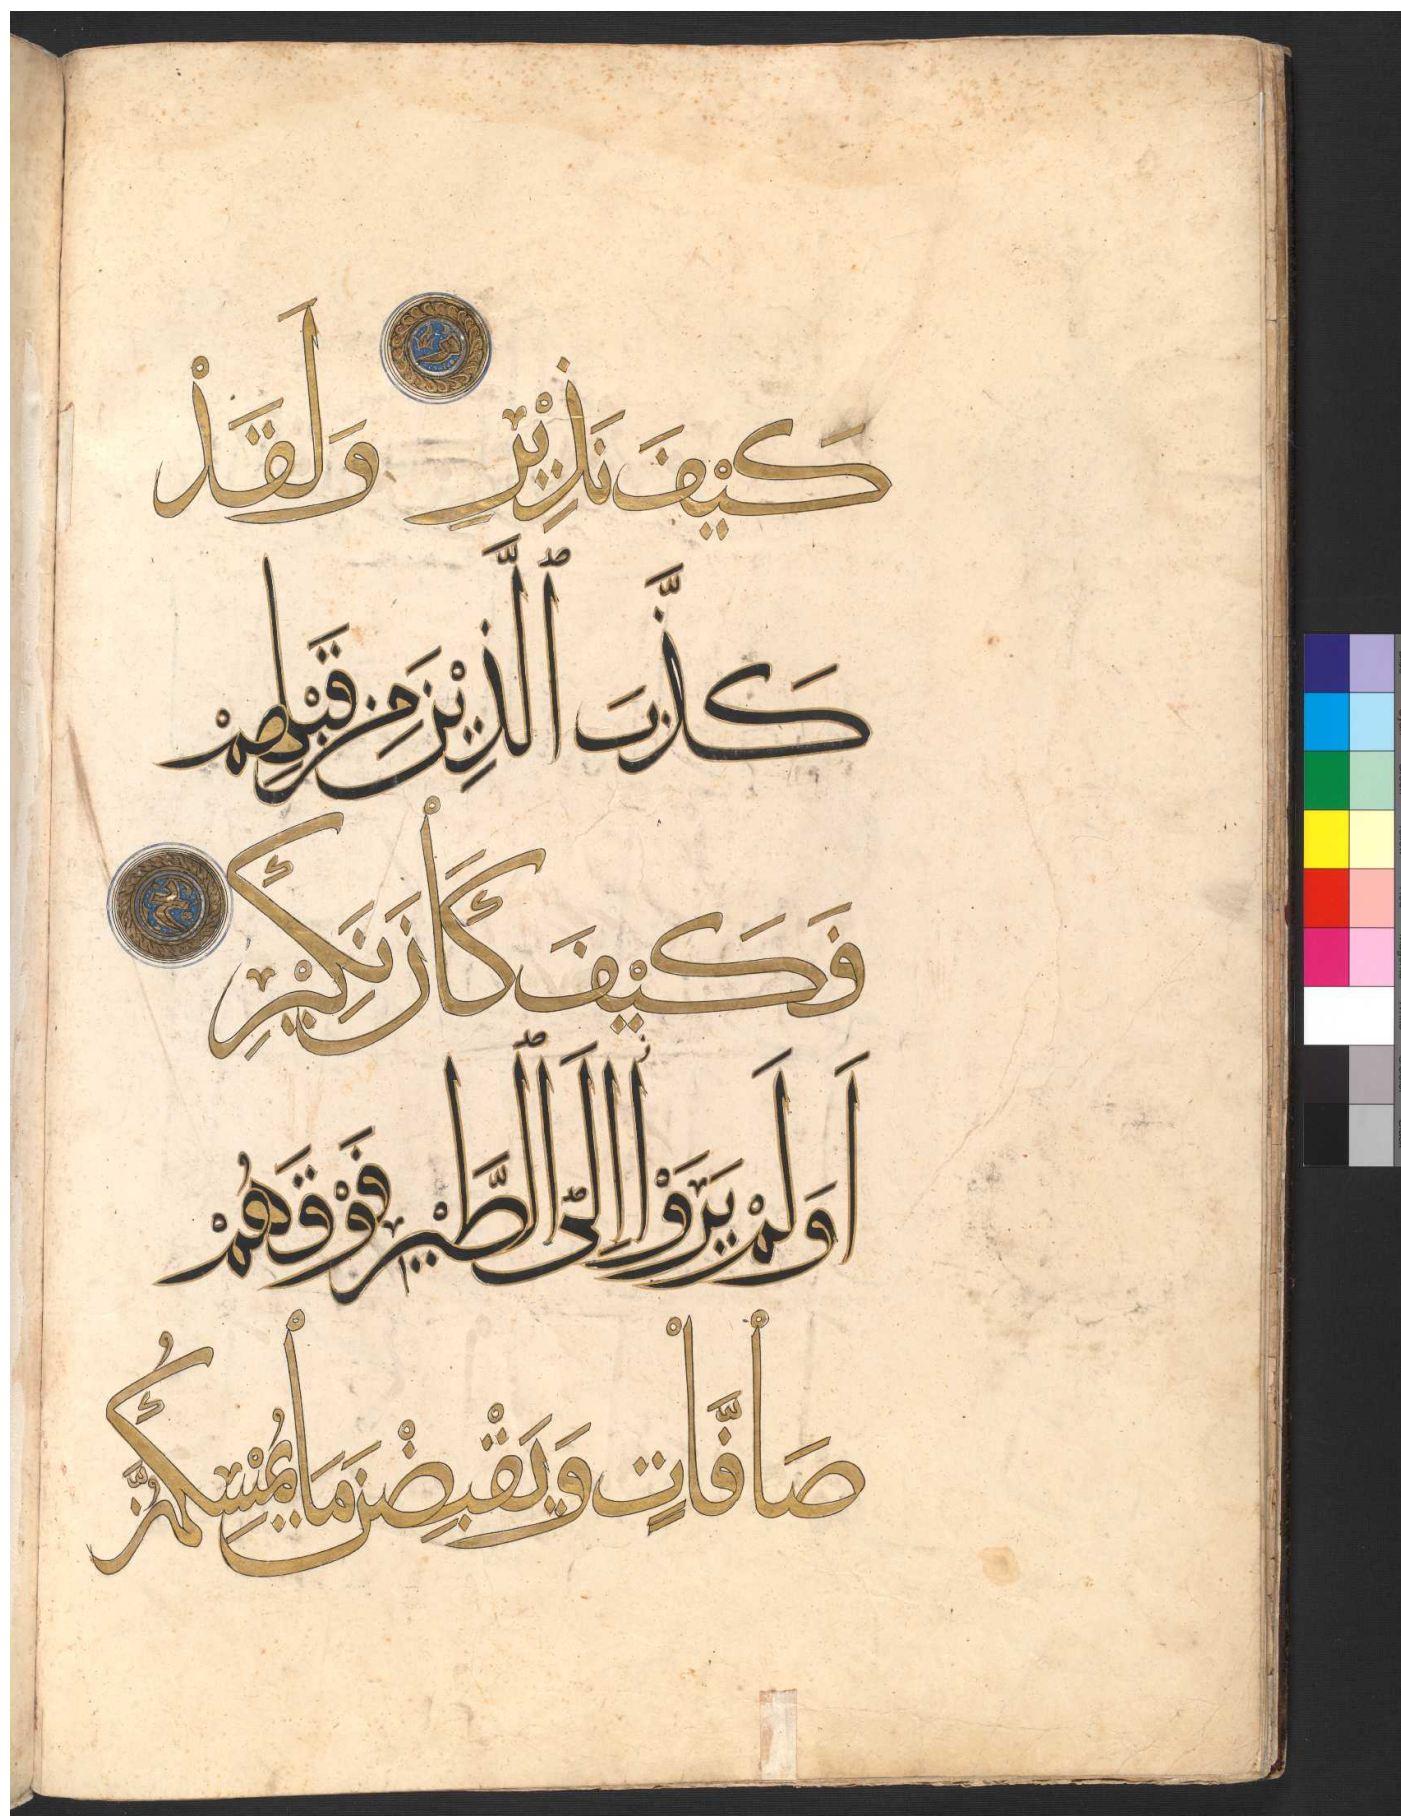 كَيْفَ نَذِيْرِ وَلَقَدْ
كَذَّبَ ٱلَّذِيْنَ مِن قَبْلِهِمْ
فَكَيْفَ كَاْنَ نَكِيْرِ
اَوَلَمْ يَرَوْا اِلَى ٱلطَّيْرِ فَوْقَهُمْ
صَاْفَّاْتٍ وَيَقْبِضْنَ مَاْ يُمْسِكُهُنَّ